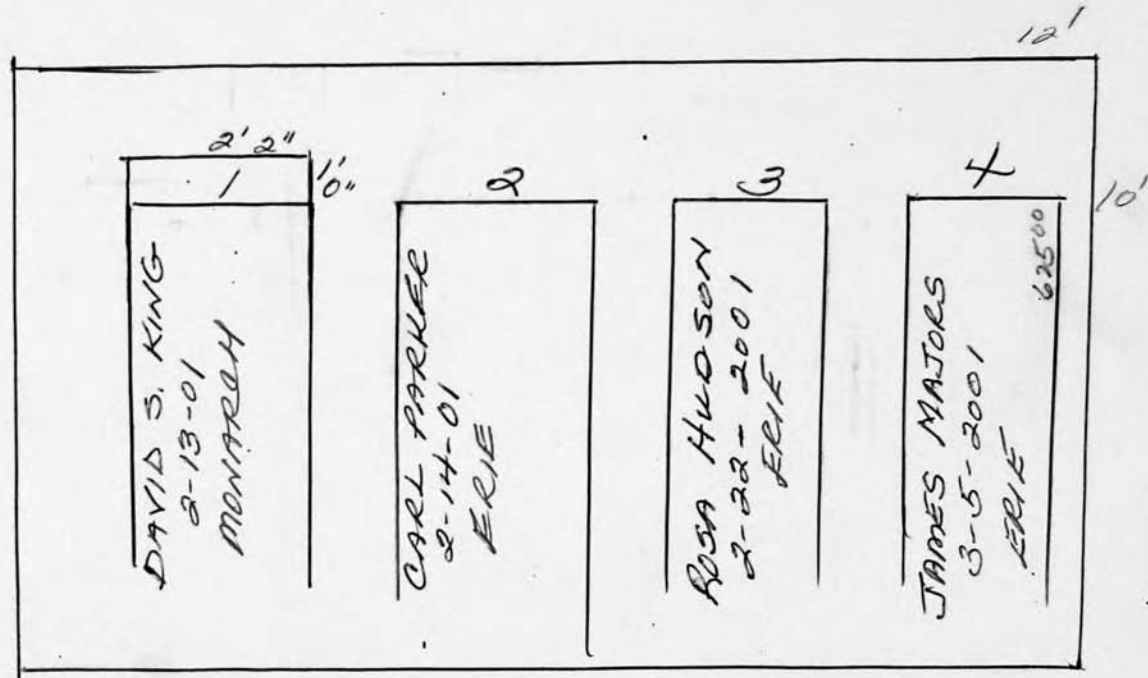 12'
10'
2' 2"
1
1'
0"
DAVID S. KING
2-13-01
MONARCH
2
CARL PARKER
2-14-01
ERIE
3
ROSA HUDSON
2-22-2001
ERIE
4
JAMES MAJORS
3-5-2001
ERIE
625 00